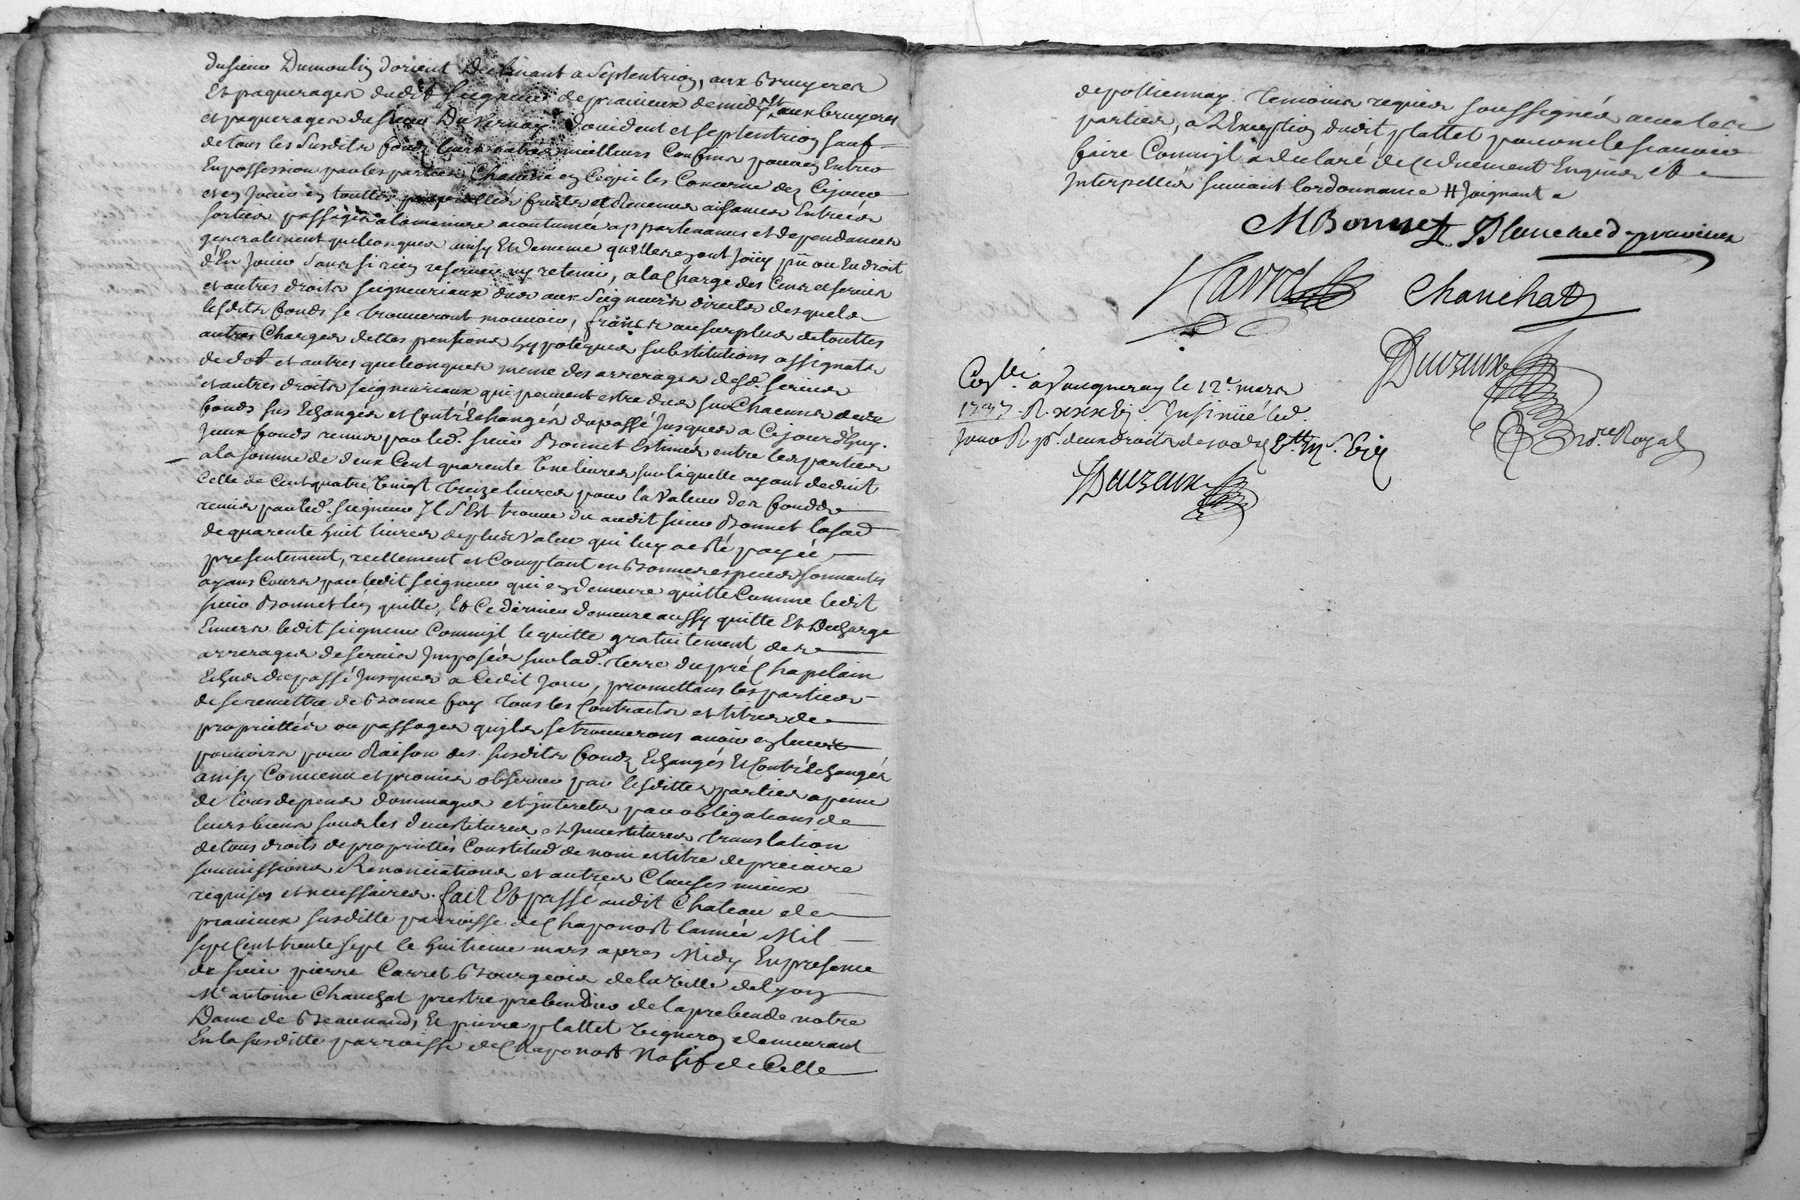 du sieur Dumoulin dorient declinant a septentrion, aux bruyeres
Et paquerages dudit seigneur de pravieux de midy Et aux bruyeres
et paquerages du sieur Duvernay doccident et septentrion sauf
de tous les susdits fonds leurs autres meilleurs Confins pour en Entrer
En possession par les parties Chacune en ce qui les Concerne dez Cejourd
et en Jouir en touttes proprietés fruits et Revenus aisances Entrées
sorties passages a la maniere acoutumée appartenances et dependances
generalement quelconques ainsy Et de meme qu'elles en ont Jouy pû ou Eu droit
d'En Jouir sans si rien reserver ny retenir, a la Charge des Cens et servis
et autres droits seigneuriaux dûs aux seigneurs directs desquels
lesdits fonds se trouveront mouvoir, francs au surplus de touttes
autres Charges dettes pensions hypoteques substitutions assignats
de dot et autres quelconques meme des arrerages desd. servis
et autres droits seigneuriaux qui peuvent estre dus sur Chacuns
fonds sus Echangés et Contr'Echangés du passé Jusques a Cejourd'huy.
Iceux fonds remis par led. sieur Bonnet Estimés entre les parties
a la somme de deux Cent quarente Une livres sur laquelle ayant deduit
Celle de Cent quatre Vingt treize livres pour la Valeur des fonds
remis par led. seigneur Il s'Est trouvé dû audit sieur Bonnet la som.
de quarente huit livres de plus Value qui luy a esté payée
presentement, reellement et Comptant en Bonnes especes sonnantes
ayans Cours par ledit seigneur qui en demeure quitte Comme ledit
sieur Bonnet l'en quitte, Et Ce dernier demeure aussy quitte Et Decharge
Envers ledit seigneur Comm'il le quitte gratuitement des
arrerages de servis Imposés sur lad. terre du pré Chapelain
Echus du passé Jusques a Cedit Jour, promettans les parties
de se remettre de Bonne foy tous les Contracts et titres de
proprietés ou passages qu'ils se trouveront avoir en leurs
pouvoirs pour Raison des susdits fonds Echangés Et Contr'Echangés
ainsy Convenu et promis observer par lesdittes parties a peine
de tous depens dommages et interets par obligations de
leurs biens sous les devestitures et Investitures translation
de tous droits de proprietés Constitut de nom et titre de precaire
soumissions Renonciations et autres Clauses mieux
requises et necessaires. fait Et passé audit Chateau de
pravieux susditte parroisse de Chaponost l'année Mil
sept Cent trente sept le huitieme mars apres Midy En presence
de sieur pierre Carret Bourgeois de la Ville de Lyon
Mre antoine Chanchat prestre prebendier de la prebende notre
Dame de Beaunand, Et pierre plattet Vigneron demeurant
En la susditte parroisse de Chaponost Natif de Celle
de pollionnay. temoins requis soussignés avec les
parties, a l'Exception dudit plattet pour ne le savoir
faire Comm'il a declaré de Ce duement Enquis et
Interpellés suivant l'ordonnance H Joignant
MBonnet Blanchard pravieux
Carret Chanchat
Duvzeux
Conllé a Vaugneray le 12e. mars
1737. R. Insinué led
Jour R.
Nore. Royal